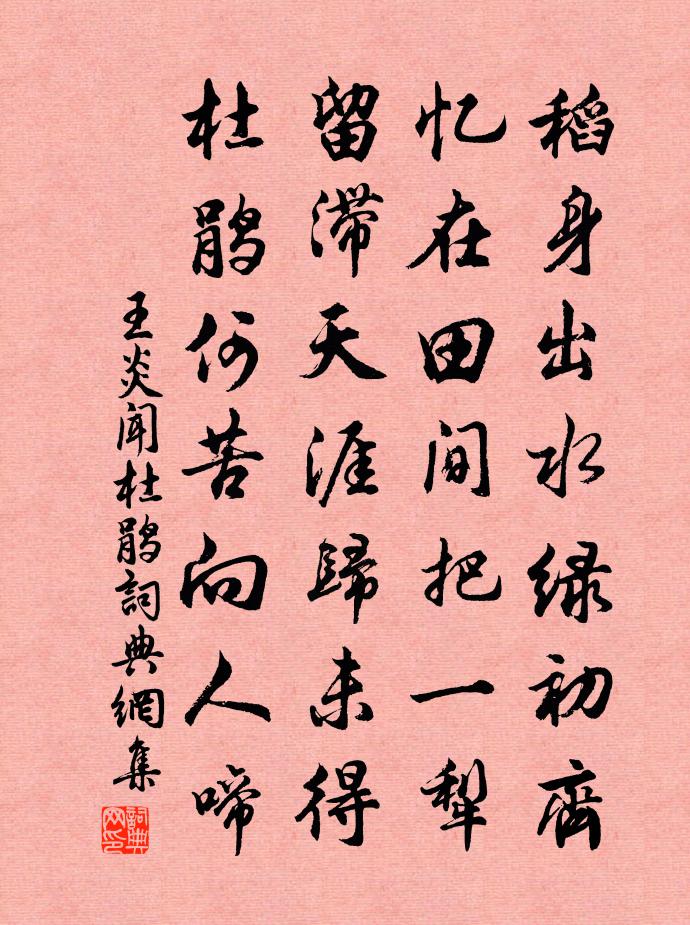 稻身出水緑初齊
忆在田间把一犁
留滞天涯歸未得
杜鹃何苦向人啼
王炎闻杜鹃詞典網集
詞典网印